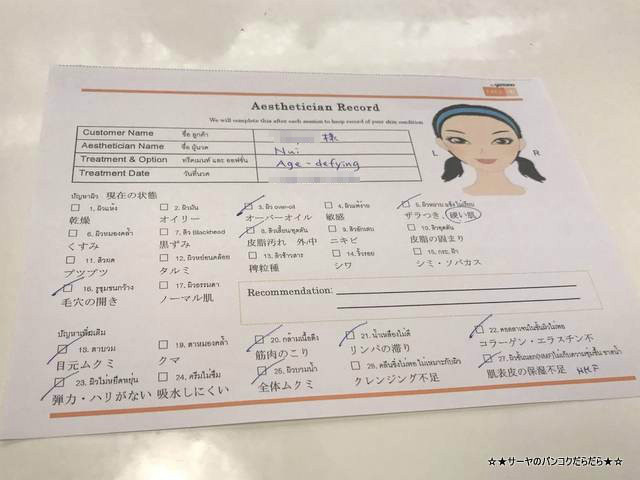 Aesthetician Record
We will complete this after each session to keep record of your skin condition
Customer Name ชื่อ ลูกค้า 様
Aesthetician Name ชื่อ ผู้นวด Nui
Treatment & Option ทรีตเมนท์ และ ออฟชั่น Age-defying
Treatment Date วันที่นวด
L R
ปัญหาผิว 現在の状態
1. ผิวแห้ง 2. ผิวมัน 3. ผิว over-oil 4. ผิวแพ้ง่าย
乾燥 オイリー オーバーオイル 敏感 ザラつき、硬い肌
6. ผิวหมองคล้ำ 7. สิว Blackhead 8. สิวเสี้ยน/อุดตัน 9. สิวอักเสบ 10. สิวอุดตัน
くすみ 黒ずみ 皮脂汚れ 外/中 ニキビ 皮脂の固まり
11. สิวผด 12. ผิวหย่อนคล้อย 13. สิวข้าวสาร 14. ริ้วรอย 15. กระ, ฝ้า
ブツブツ タルミ 稗粒種 シワ シミ・ソバカス
16. รูขุมขนกว้าง 17. ผิวธรรมดา
毛穴の開き ノーマル肌
Recommendation:
ปัญหาเพิ่มเติม
ตาบวม 19. ตาหมองคล้ำ 20. กล้ามเนื้อตึง 21. น้ำเหลืองไม่ดี
目元ムクミ クマ 筋肉のこり リンパの滞り コラーゲン・エラスチン不
23. ผิวไม่ยืดหยุ่น 24. ครีมไม่ซึม 25. ผิวบวมน้ำ
弾力・ハリがない 吸水しにくい 全体ムクミ クレンジング不足 肌表皮の保湿不足
☆★サーヤのバンコクだらだら★☆